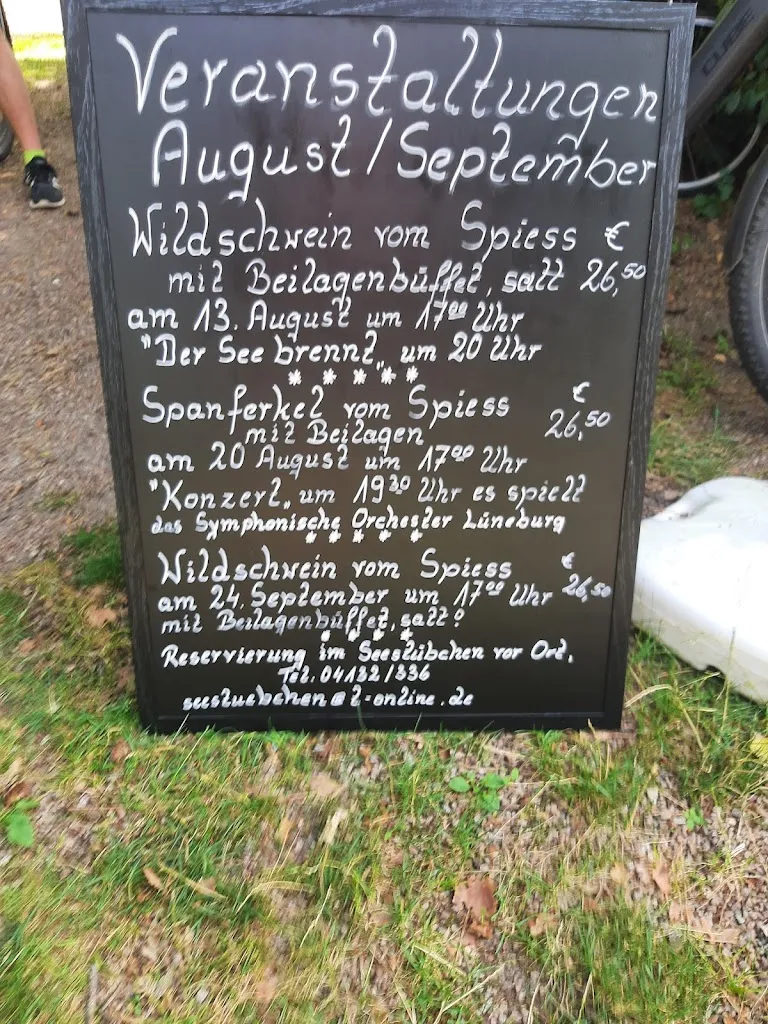 Veranstaltungen
August / September
Wildschwein vom Spiess €
mit Beilagenbüffet, satt 26,50
am 13. August um 17 00 Uhr
"Der See brennt" um 20 Uhr
* * * * *
Spanferkel vom Spiess €
mit Beilagen 26,50
am 20 August um 17 00 Uhr
"Konzert" um 19 30 Uhr es spielt
das Symphonische Orchester Lüneburg
* * * * *
Wildschwein vom Spiess €
am 24. September um 17 00 Uhr 26,50
mit Beilagenbüffet, satt!
* * * *
Reservierung im Seestübchen vor Ort.
Tel. 04132/336
seestuebchen@t-online.de
CUBE